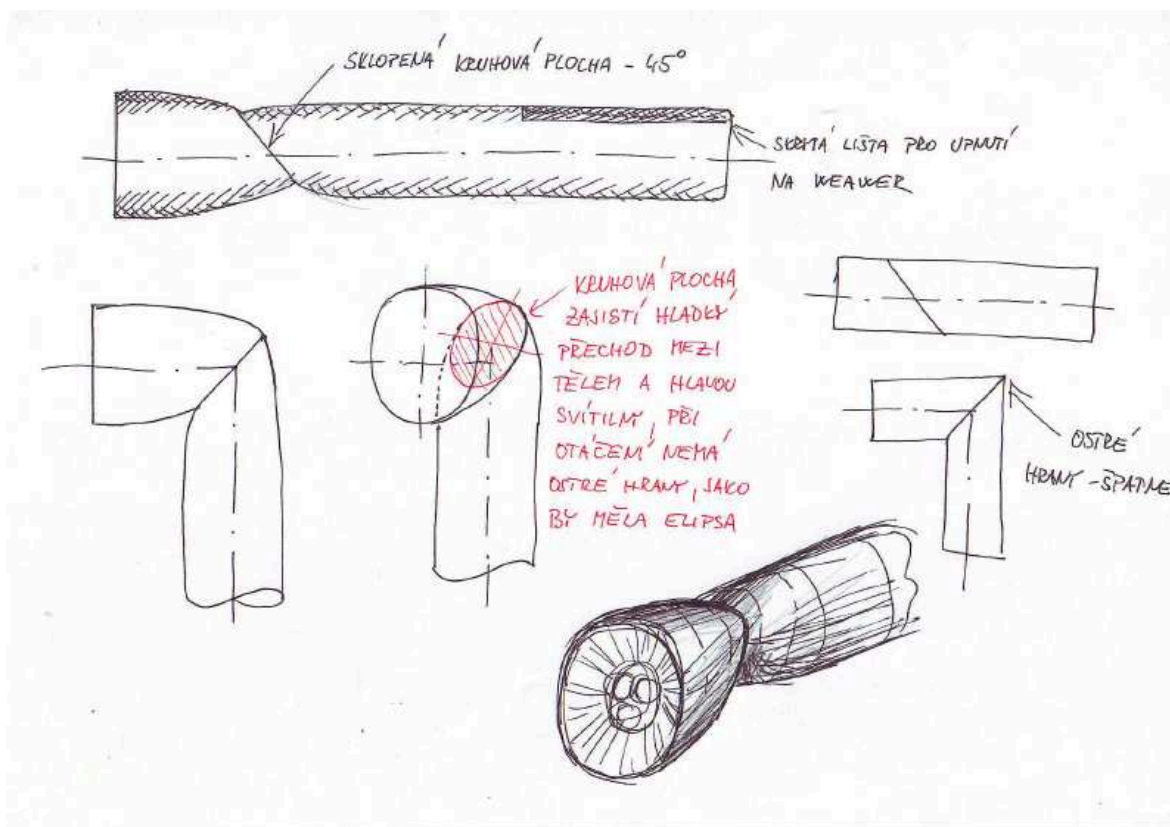 SKLOPENÁ KRUHOVÁ PLOCHA - 45°
SKRYTÁ LIŠTA PRO UPNUTÍ
NA WEAWER
KRUHOVÁ PLOCHA
ZAJISTÍ HLADKÝ
PŘECHOD MEZI
TĚLEM A HLAVOU
SVÍTILNY, PŘI
OTÁČENÍ NEMÁ
OSTRÉ HRANY, JAKO
BY MĚLA ELIPSA
OSTRÉ
HRANY - ŠPATNĚ